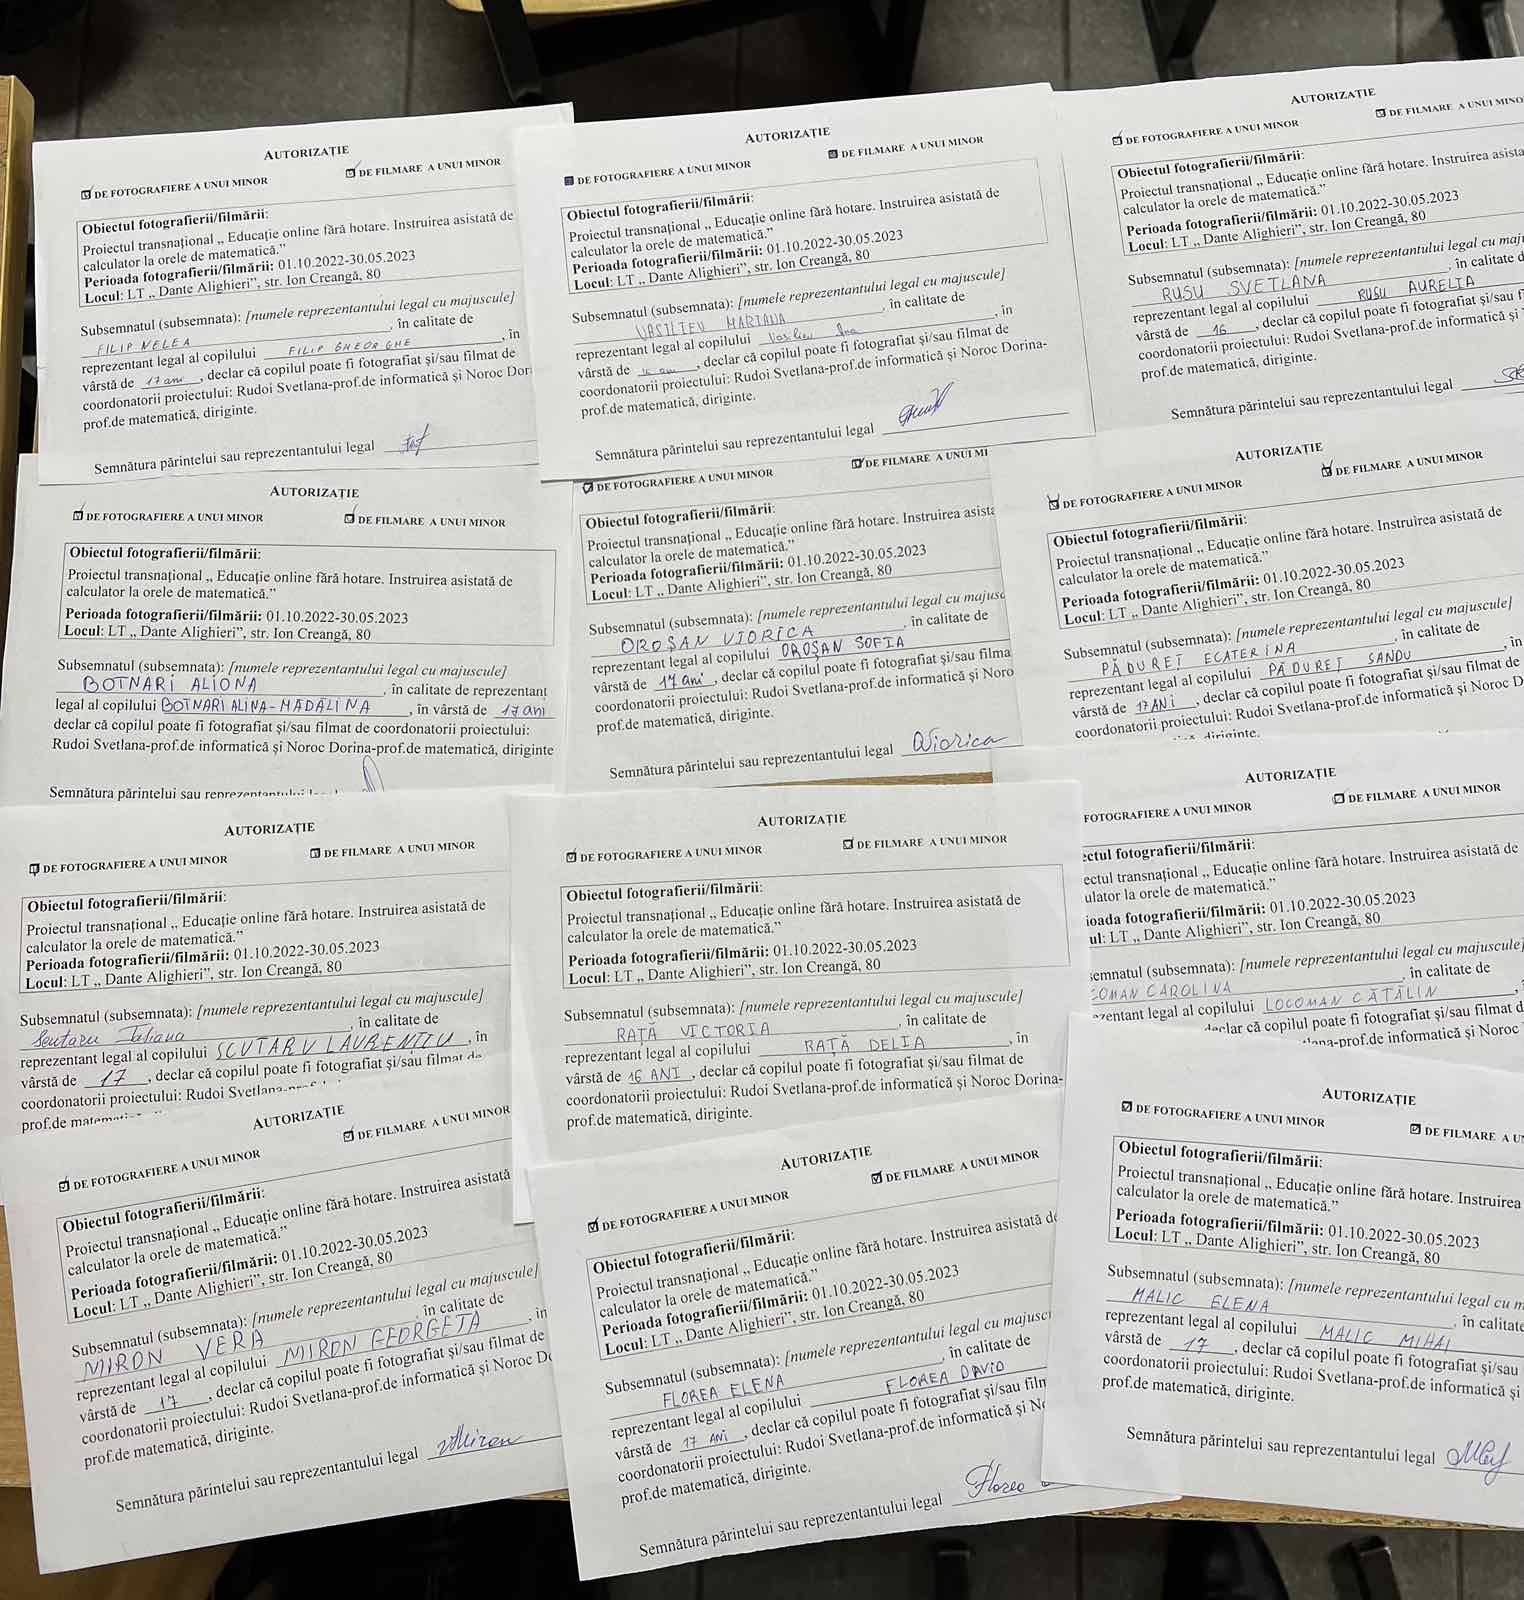 AUTORIZAȚIE
DE FOTOGRAFIERE A UNUI MINOR DE FILMARE A UNUI MINOR
Obiectul fotografierii/filmării:
Proiectul transnațional „ Educație online fără hotare. Instruirea asistată de
calculator la orele de matematică.”
Perioada fotografierii/filmării: 01.10.2022-30.05.2023
Locul: LT „ Dante Alighieri”, str. Ion Creangă, 80
Subsemnatul (subsemnata): [numele reprezentantului legal cu majuscule]
FILIP NELEA, în calitate de
reprezentant legal al copilului FILIP GHEORGHE, în
vârstă de 17 ani, declar că copilul poate fi fotografiat și/sau filmat de
coordonatorii proiectului: Rudoi Svetlana-prof.de informatică și Noroc Dori
prof.de matematică, diriginte.
Semnătura părintelui sau reprezentantului legal
AUTORIZAȚIE
DE FOTOGRAFIERE A UNUI MINOR DE FILMARE A UNUI MINOR
Obiectul fotografierii/filmării:
Proiectul transnațional „ Educație online fără hotare. Instruirea asistată de
calculator la orele de matematică.”
Perioada fotografierii/filmării: 01.10.2022-30.05.2023
Locul: LT „ Dante Alighieri”, str. Ion Creangă, 80
Subsemnatul (subsemnata): [numele reprezentantului legal cu majuscule]
VASILIEV MARIANA, în calitate de
reprezentant legal al copilului Vasiliev Ana, în
vârstă de , declar că copilul poate fi fotografiat și/sau filmat de
coordonatorii proiectului: Rudoi Svetlana-prof.de informatică și Noroc Dorina-
prof.de matematică, diriginte.
Semnătura părintelui sau reprezentantului legal
AUTORIZAȚIE
DE FOTOGRAFIERE A UNUI MINOR DE FILMARE A UNUI MINO
Obiectul fotografierii/filmării:
Proiectul transnațional „ Educație online fără hotare. Instruirea asista
calculator la orele de matematică.”
Perioada fotografierii/filmării: 01.10.2022-30.05.2023
Locul: LT „ Dante Alighieri”, str. Ion Creangă, 80
Subsemnatul (subsemnata): [numele reprezentantului legal cu maj
RUSU SVETLANA, în calitate d
reprezentant legal al copilului RUSU AURELIA
vârstă de 16, declar că copilul poate fi fotografiat și/sau f
coordonatorii proiectului: Rudoi Svetlana-prof.de informatică și
prof.de matematică, diriginte.
Semnătura părintelui sau reprezentantului legal
AUTORIZAȚIE
DE FOTOGRAFIERE A UNUI MINOR DE FILMARE A UNUI MINOR
Obiectul fotografierii/filmării:
Proiectul transnațional „ Educație online fără hotare. Instruirea asistată de
calculator la orele de matematică.”
Perioada fotografierii/filmării: 01.10.2022-30.05.2023
Locul: LT „ Dante Alighieri”, str. Ion Creangă, 80
Subsemnatul (subsemnata): [numele reprezentantului legal cu majuscule]
BOTNARI ALIONA, în calitate de reprezentant
legal al copilului BOTNARI ALINA-MĂDĂLINA, în vârstă de 17 ani
declar că copilul poate fi fotografiat și/sau filmat de coordonatorii proiectului:
Rudoi Svetlana-prof.de informatică și Noroc Dorina-prof.de matematică, diriginte
Semnătura părintelui sau reprezentantului
DE FOTOGRAFIERE A UNUI MINOR DE FILMARE A UNUI MI
Obiectul fotografierii/filmării:
Proiectul transnațional „ Educație online fără hotare. Instruirea asista
calculator la orele de matematică.”
Perioada fotografierii/filmării: 01.10.2022-30.05.2023
Locul: LT „ Dante Alighieri”, str. Ion Creangă, 80
Subsemnatul (subsemnata): [numele reprezentantului legal cu majusc
OROȘAN VIORICA, în calitate de
reprezentant legal al copilului OROȘAN SOFIA
vârstă de 17 ani, declar că copilul poate fi fotografiat și/sau filma
coordonatorii proiectului: Rudoi Svetlana-prof.de informatică și Noro
prof.de matematică, diriginte.
Semnătura părintelui sau reprezentantului legal Viorica
AUTORIZAȚIE
DE FOTOGRAFIERE A UNUI MINOR DE FILMARE A UNUI MINOR
Obiectul fotografierii/filmării:
Proiectul transnațional „ Educație online fără hotare. Instruirea asistată de
calculator la orele de matematică.”
Perioada fotografierii/filmării: 01.10.2022-30.05.2023
Locul: LT „ Dante Alighieri”, str. Ion Creangă, 80
Subsemnatul (subsemnata): [numele reprezentantului legal cu majuscule]
PĂDUREȚ ECATERINA, în calitate de
reprezentant legal al copilului PĂDUREȚ SANDU, în
vârstă de 17 ANI, declar că copilul poate fi fotografiat și/sau filmat de
coordonatorii proiectului: Rudoi Svetlana-prof.de informatică și Noroc D
diriginte.
AUTORIZAȚIE
DE FOTOGRAFIERE A UNUI MINOR DE FILMARE A UNUI MINOR
Obiectul fotografierii/filmării:
Proiectul transnațional „ Educație online fără hotare. Instruirea asistată de
calculator la orele de matematică.”
Perioada fotografierii/filmării: 01.10.2022-30.05.2023
Locul: LT „ Dante Alighieri”, str. Ion Creangă, 80
Subsemnatul (subsemnata): [numele reprezentantului legal cu majuscule]
Scutaru Tatiana, în calitate de
reprezentant legal al copilului SCUTARU LAURENȚIU, în
vârstă de 17, declar că copilul poate fi fotografiat și/sau filmat de
coordonatorii proiectului: Rudoi Svetlana-prof
prof.de matematic
AUTORIZAȚIE
DE FOTOGRAFIERE A UNUI MINOR DE FILMARE A UNUI MINOR
Obiectul fotografierii/filmării:
Proiectul transnațional „ Educație online fără hotare. Instruirea asistată de
calculator la orele de matematică.”
Perioada fotografierii/filmării: 01.10.2022-30.05.2023
Locul: LT „ Dante Alighieri”, str. Ion Creangă, 80
Subsemnatul (subsemnata): [numele reprezentantului legal cu majuscule]
RAȚĂ VICTORIA, în calitate de
reprezentant legal al copilului RAȚĂ DELIA, în
vârstă de 16 ANI, declar că copilul poate fi fotografiat și/sau filmat de
coordonatorii proiectului: Rudoi Svetlana-prof.de informatică și Noroc Dorina-
prof.de matematică, diriginte.
AUTORIZAȚIE
FOTOGRAFIERE A UNUI MINOR DE FILMARE A UNUI MINOR
ectul fotografierii/filmării:
ectul transnațional „ Educație online fără hotare. Instruirea asistată de
ulator la orele de matematică.”
ioada fotografierii/filmării: 01.10.2022-30.05.2023
ul: LT „ Dante Alighieri”, str. Ion Creangă, 80
semnatul (subsemnata): [numele reprezentantului legal cu majuscule]
COMAN CAROLINA, în calitate de
ezentant legal al copilului LOCOMAN CĂTĂLIN
declar că copilul poate fi fotografiat și/sau filmat d
ana-prof.de informatică și Noroc
AUTORIZAȚIE
DE FOTOGRAFIERE A UNUI MINOR DE FILMARE A UNUI MINOR
Obiectul fotografierii/filmării:
Proiectul transnațional „ Educație online fără hotare. Instruirea asistată
calculator la orele de matematică.”
Perioada fotografierii/filmării: 01.10.2022-30.05.2023
Locul: LT „ Dante Alighieri”, str. Ion Creangă, 80
Subsemnatul (subsemnata): [numele reprezentantului legal cu majuscule]
MIRON VERA, în calitate de
reprezentant legal al copilului MIRON GEORGETA, în
vârstă de 17, declar că copilul poate fi fotografiat și/sau filmat de
coordonatorii proiectului: Rudoi Svetlana-prof.de informatică și Noroc Do
prof.de matematică, diriginte.
Semnătura părintelui sau reprezentantului legal VMiron
AUTORIZAȚIE
DE FOTOGRAFIERE A UNUI MINOR DE FILMARE A UNUI MINOR
Obiectul fotografierii/filmării:
Proiectul transnațional „ Educație online fără hotare. Instruirea asistată de
calculator la orele de matematică.”
Perioada fotografierii/filmării: 01.10.2022-30.05.2023
Locul: LT „ Dante Alighieri”, str. Ion Creangă, 80
Subsemnatul (subsemnata): [numele reprezentantului legal cu majusc
FLOREA ELENA, în calitate de
reprezentant legal al copilului FLOREA DAVID
vârstă de 17 ANI, declar că copilul poate fi fotografiat și/sau film
coordonatorii proiectului: Rudoi Svetlana-prof.de informatică și No
prof.de matematică, diriginte.
Semnătura părintelui sau reprezentantului legal Florea
AUTORIZAȚIE
DE FOTOGRAFIERE A UNUI MINOR DE FILMARE A UN
Obiectul fotografierii/filmării:
Proiectul transnațional „ Educație online fără hotare. Instruirea
calculator la orele de matematică.”
Perioada fotografierii/filmării: 01.10.2022-30.05.2023
Locul: LT „ Dante Alighieri”, str. Ion Creangă, 80
Subsemnatul (subsemnata): [numele reprezentantului legal cu m
MALIC ELENA, în calitate
reprezentant legal al copilului MALIC MIHAI
vârstă de 17, declar că copilul poate fi fotografiat și/sau
coordonatorii proiectului: Rudoi Svetlana-prof.de informatică și
prof.de matematică, diriginte.
Semnătura părintelui sau reprezentantului legal